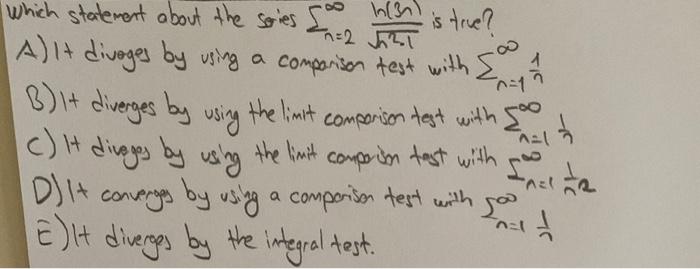 Which statement about the series ∑_{n=2}^{∞} ln(3n)/√(n²-1) is true?
A) It diverges by using a comparison test with ∑_{n=1}^{∞} 1/n
B) It diverges by using the limit comparison test with ∑_{n=1}^{∞} 1/n
C) It diverges by using the limit comparison test with ∑_{n=1}^{∞} 1/n²
D) It converges by using a comparison test with ∑_{n=1}^{∞} 1/n
E) It diverges by the integral test.